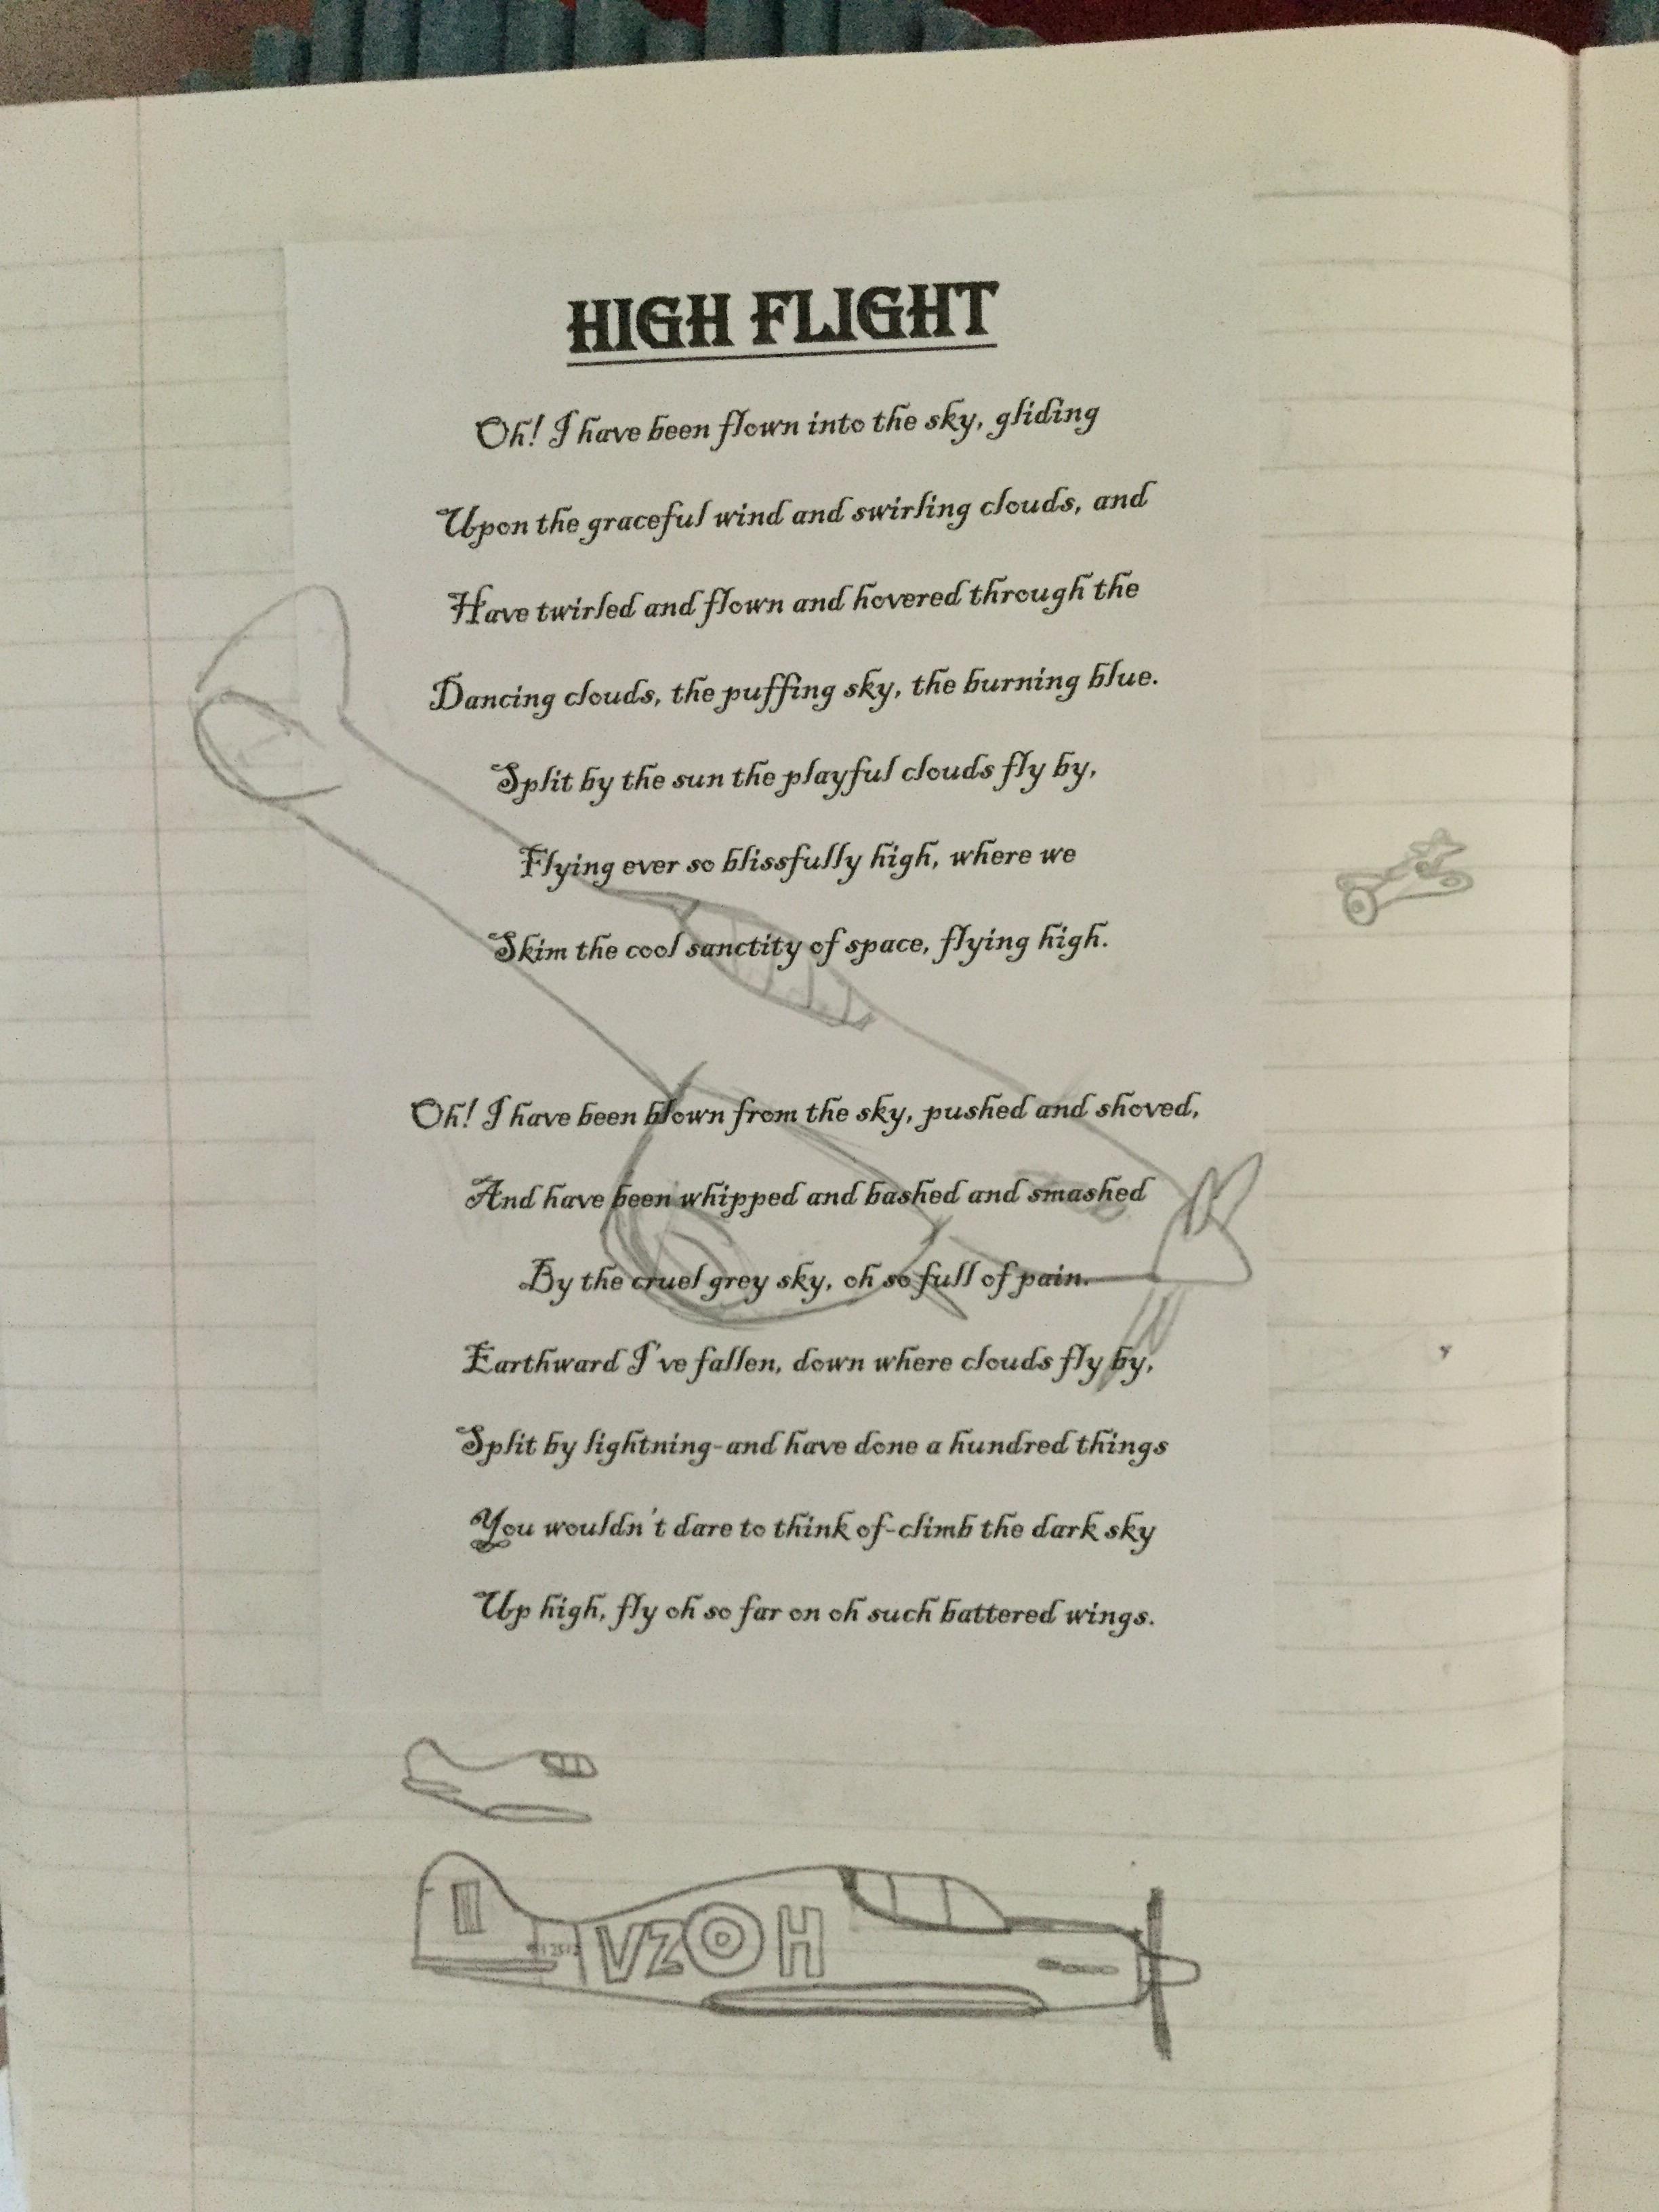 HIGH FLIGHT
Oh! I have been flown into the sky, gliding
Upon the graceful wind and swirling clouds, and
Have twirled and flown and hovered through the
Dancing clouds, the puffing sky, the burning blue.
Split by the sun the playful clouds fly by,
Flying ever so blissfully high, where we
Skim the cool sanctity of space, flying high.
Oh! I have been blown from the sky, pushed and shoved,
And have been whipped and bashed and smashed
By the cruel grey sky, oh so full of pain.
Earthward I've fallen, down where clouds fly by,
Split by lightning-and have done a hundred things
You wouldn't dare to think of-climb the dark sky
Up high, fly oh so far on oh such battered wings.
VZ H